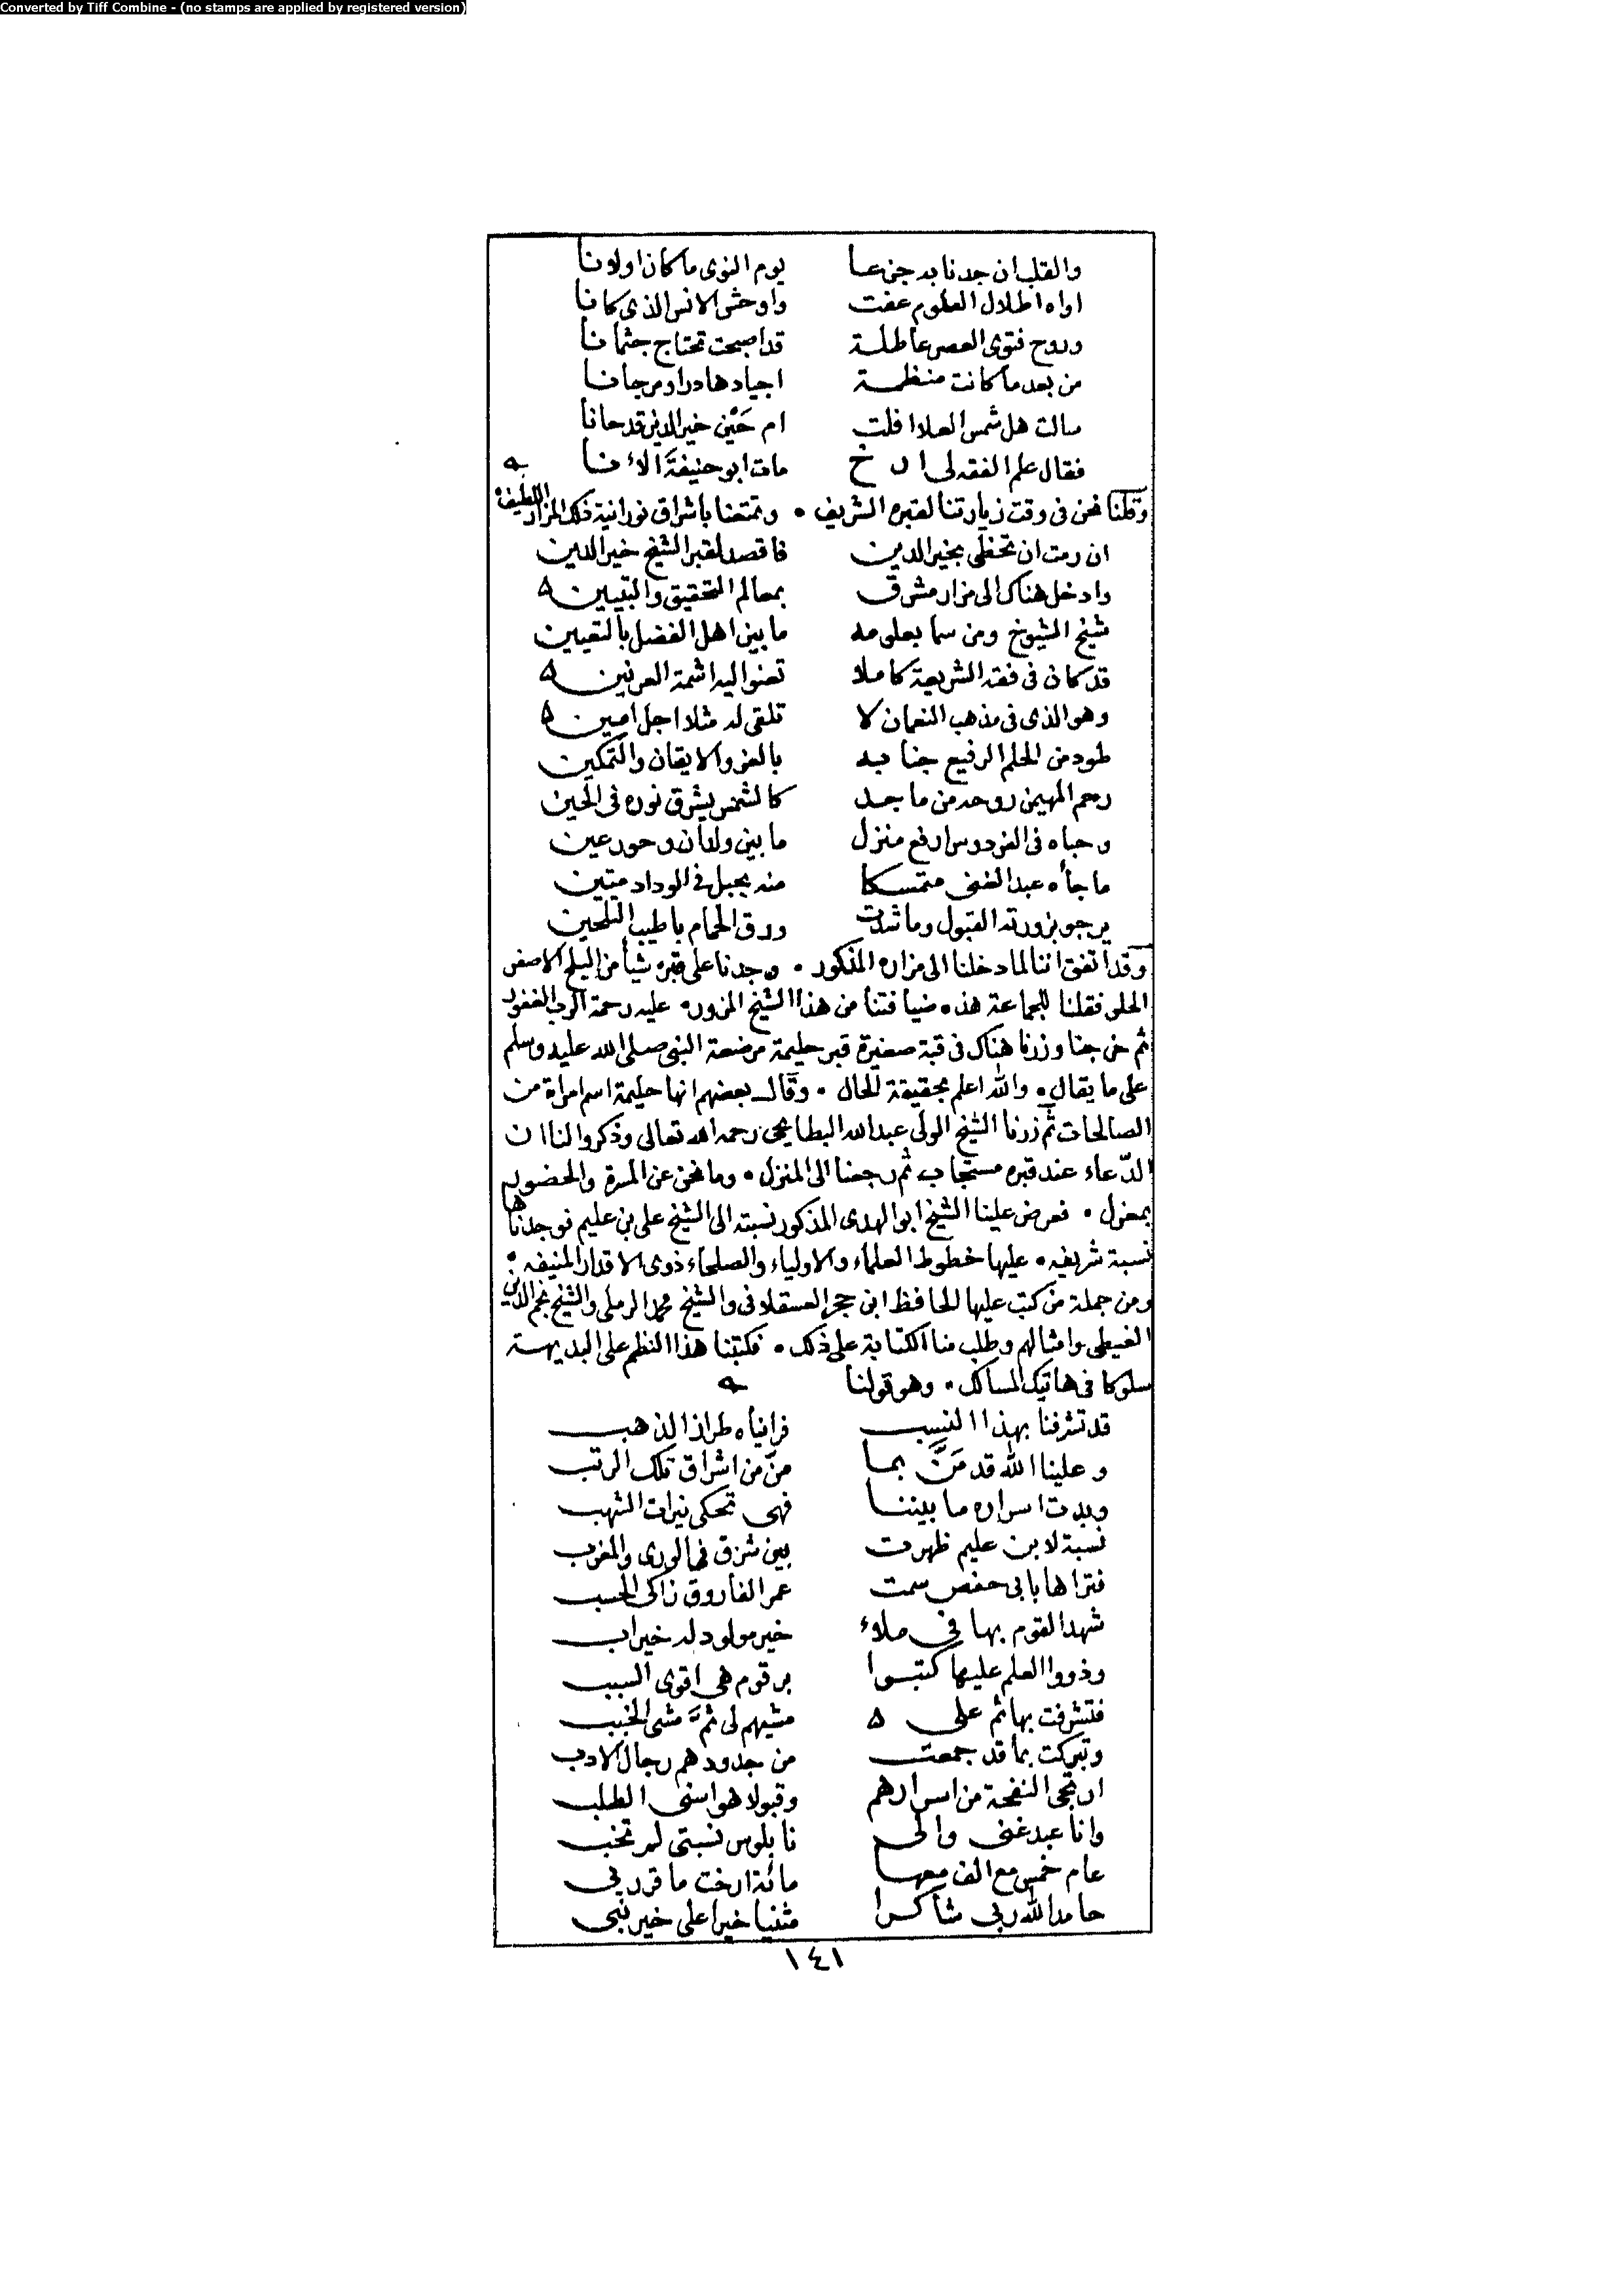 Converted by Tiff Combine - (no stamps are applied by registered version)
والقلب ان جدنا به جزعا يوم النوى ما كان اولانا
اواه اطلال العلوم عفت واوحش الانس الذى كانا
وروح فتوى العصر عاطلة قد اصبحت تحتاج جثمانا
من بعد ما كانت منظمة اجيادها درا ومرجانا
سالت هل شمس العلا افلت ام حَيْن خير الدين قد حانا
فقال علم الفقه لى ارخ مات ابو حنيفة الأنا
وقلنا نحن فى وقت زيارتنا لقبره الشريف • وتمتعنا باشراق نورانية ذلك المزار اللطيف
ان رمت ان تحظى بخير الدين فاقصد لقبر الشيخ خير الدين
وادخل هناك الى مزار مشرق بمعالم التحقيق والتبيين
شيخ الشيوخ ومن سما بعلومه ما بين اهل الفضل بالتعيين
قد كان فى فقه الشريعة كاملا تعنوا اليه اشمة العرنين
وهو الذى فى مذهب النعمان لا تلقى له مثلا اجل امين
طود من الحلم الرفيع جنابه بالعز والايقان والتمكين
رحم المهيمن روحه من ماجد كالشمس يشرق نوره فى الحين
وحباه فى الفردوس ارفع منزل ما بين ولدان وحور عين
ما جأه عبد الغنى متمسكا منه بحبل فى الوداد متين
يرجو بزورته القبول وما شدت ورق الحمام باطيب التلحين
وقد اتفق اننا لما دخلنا الى مزاره المذكور • وجدنا على قبره شيأ من البلح الاصفر
الحلو فقلنا للجماعة هذه ضيافتنا من هذا الشيخ المزور • عليه رحمة الرب الغفور
ثم خرجنا وزرنا هناك فى قبة صغيرة قبر حليمة مرضعة النبى صلى الله عليه وسلم
على ما يقال • والله اعلم بحقيقة الحال • وقال بعضهم انها حليمة اسم امراة من
الصالحات ثم زرنا الشيخ الولى عبد الله البطايحى رحمه الله تعالى وذكروا لنا ان
الدّعاء عند قبره مستجاب ثم رجعنا الى المنزل • وما نحن عن المسرة والحضور
بمعزل • فعرض علينا الشيخ ابو الهدى المذكور نسبته الى الشيخ على بن عليم فوجدناها
نسبة شريفه • عليها خطوط العلماء والاولياء والصلحاء ذوى الاقدار المنيفه •
ومن جملة من كتب عليها الحافظ ابن حجر العسقلانى والشيخ محمد الرملى والشيخ نجم الدين
الغيطى وامثالهم وطلب منا الكتابة على ذلك • فكتبنا هذا النظم على البديهة
سلوكا فى هاتيك المسالك • وهو قولنا
قد تشرفنا بهذا النسب فرايناه طراز الذهب
وعلينا الله قد مَنَّ بما منّ من اشراق تلك الرتب
وبدت اسراره ما بيننا فهى تحكى نيرات الشهب
نسبة لابن عليم ظهرت بين شرق فى الورى والمغرب
فتراها بابى حفص سمت عمر الفاروق زاكى الحسب
شهد القوم بها فى ملاء خير مولود له خير اب
وذووا العلم عليها كتبوا برقوم هى اقوى السبب
فتشرفت بها ثم على مشيهم لى ثَمَّ مشى الخبب
وتبركت بما قد جمعت من جدود هم رجال الادب
ارتجى النفحة من اسرارهم وقبولا هو اسنى الطلب
وانا عبد غنى والى نابلوس نسبتى لم تخب
عام خمس مع الف معها مائة ارخت ما قرر بى
حامدا لله ربى شاكرا مثنيا خيرا على خير نبى
١٤١